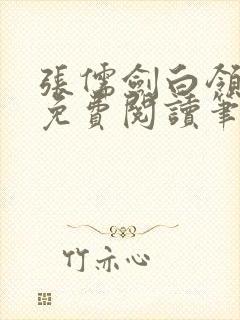 張儒劍白領
免費閱讀筆
竹亦心